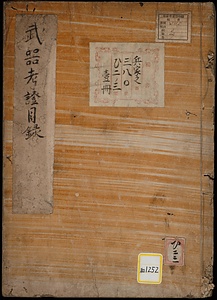 武器考證目録
兵家之
三八〇
ひ二三
壹冊
ひ二三
1252